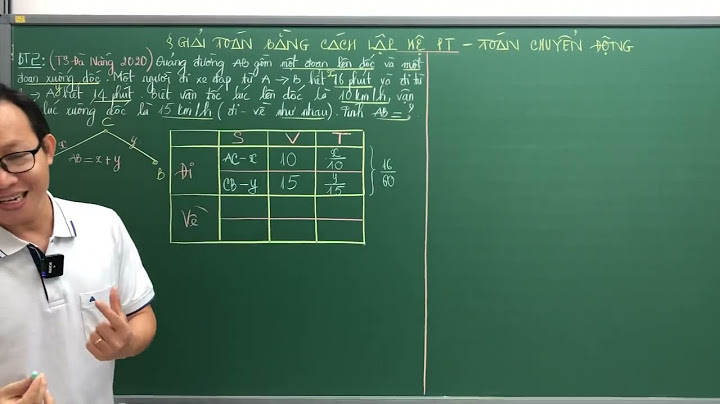 § GIẢI TOÁN BẰNG CÁCH LẬP HỆ PT - TOÁN CHUYỂN ĐỘNG
BT2: (TS Đà Nẵng 2020) Quãng đường AB gồm một đoạn lên dốc và một
đoạn xuống dốc. Một người đi xe đạp từ A → B hết 16 phút và đi từ
→ A hết 14 phút. Biết vận tốc lúc lên dốc là 10 km/h, vận
lúc xuống dốc là 15 km/h (đi - về như nhau). Tính AB = ?
C
x y
AB = x + y
B
S V T
Đi AC-x 10 x/10
CB-y 15 y/15
16/60
Về